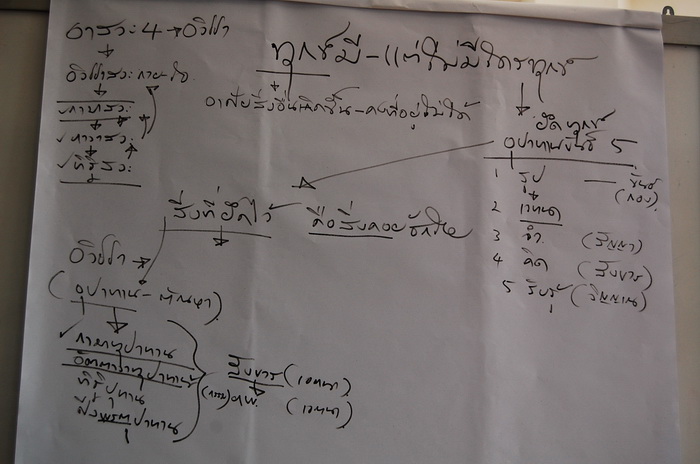 อาสวะ 4 → อวิชชา
อวิชชาสวะ กาย-ใจ
กามาสวะ
ภาวาสวะ
ทิฐิสวะ
ทุกข์มี - แต่ไม่มีใครทุกข์
อาศัยสิ่งอื่นเกิดขึ้น - คงที่อยู่ไม่ได้
ยึดทุกข์
อุปาทานขันธ์ 5
1 รูป — ขันธ์ (กอง)
2 เวทนา
3 จำ (สัญญา)
4 คิด (สังขาร)
5 รับรู้ (วิญญาณ)
สิ่งที่ยึดไว้
คือสิ่งคอยชักใย
อวิชชา →
(อุปาทาน - ตัณหา)
กามุปาทาน
อัตตวาทุปาทาน
ทิฐิปาทาน
สีลพรตปาทาน
สังขาร (เจตนา)
(เวทนา)